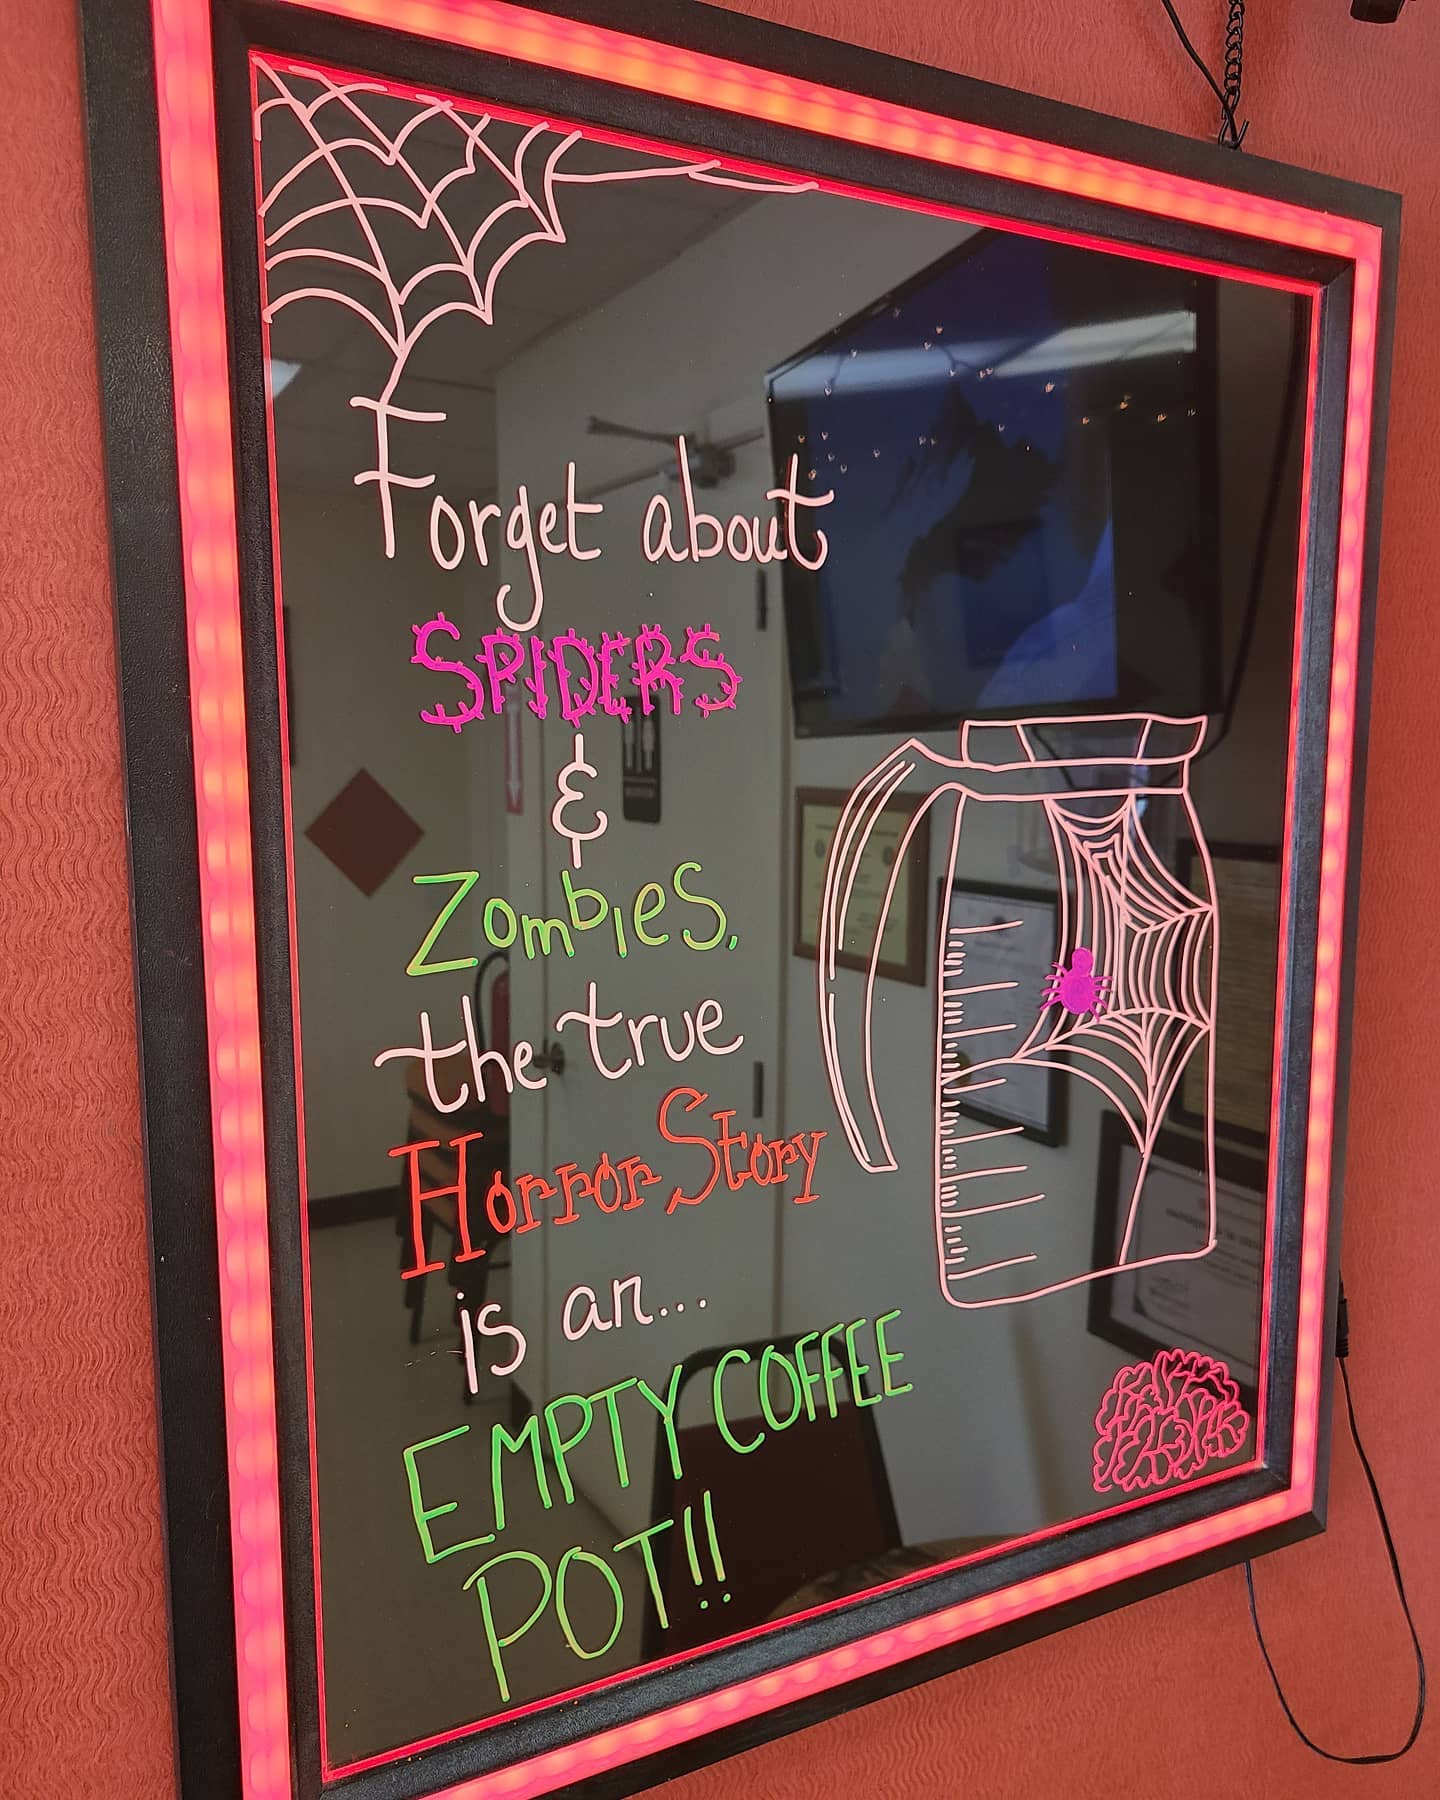 Forget about
SPIDERS
&
Zombies,
the true
Horror Story
is an...
EMPTY COFFEE
POT!!